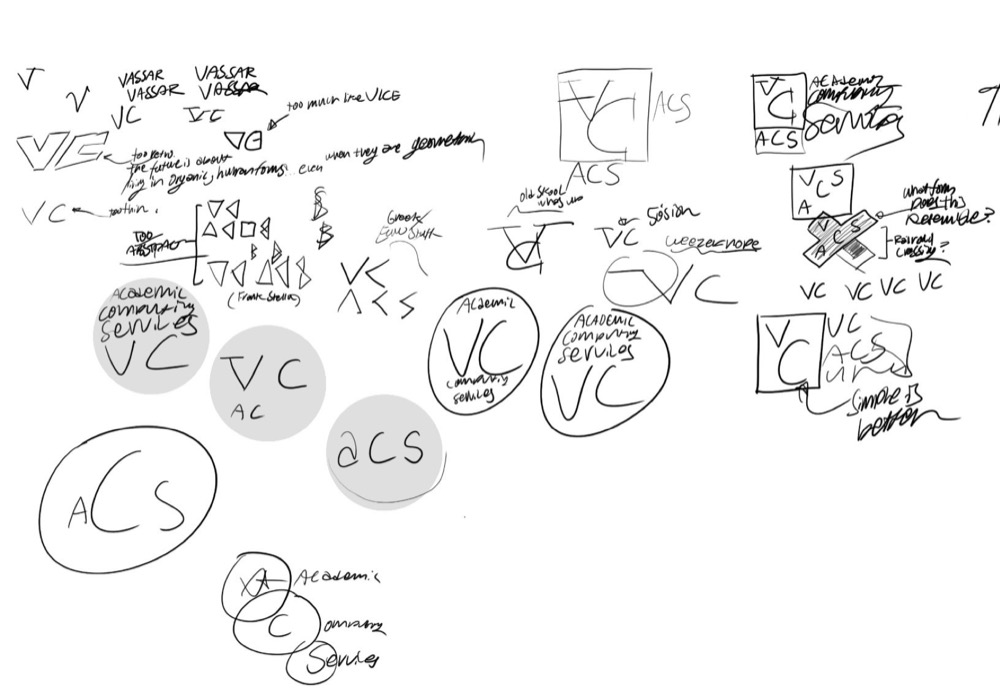 V
V
VASSAR
VASSAR
VASSAR
VASSAR
VC
VC
too much like VICE
VC
too retro.
The future is about
living in organic, human forms. even
when they are geometric
VC
too thin.
TOO
ABSTRACT
(Frank Stella)
Greek
VC
ACS
old skool
VC
VC
ACS
ACS
VC
weezer nope
VC
VC
ACS
Academic
computing
services
VCS
A
VCS
A
what form
does this
resemble?
Railroad
crossing?
VC VC VC VC
VC
VC
ACS
simple is
better
Academic
computing
services
VC
VC
AC
aCS
Academic
VC
computing
services
ACADEMIC
computing
services
VC
ACS
VA
Academic
C
omputing
Services